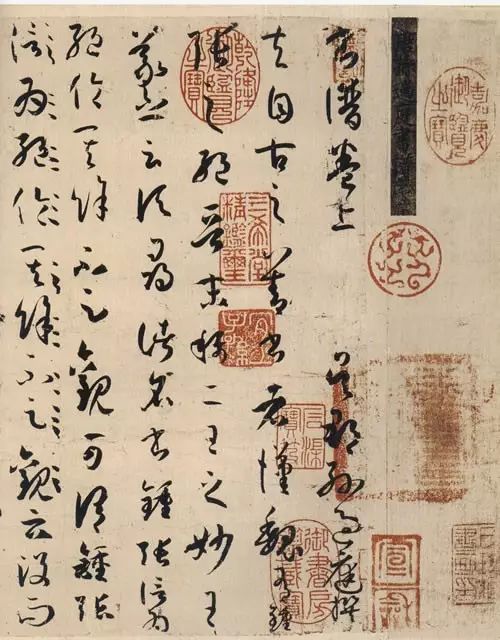 書譜卷上 吳郡孫過庭撰
夫自古之善書者漢魏有鍾
張之絕晉末稱二王之妙王
羲之云頃尋諸名書鍾張信為
絕倫其餘不足觀可謂鍾張
信為絕倫其餘不足觀云沒而
嘉慶御覽之寶
乾隆御覽之寶
三希堂精鑑璽
宜子孫
石渠寶笈
御書房鑑藏寶
宣和